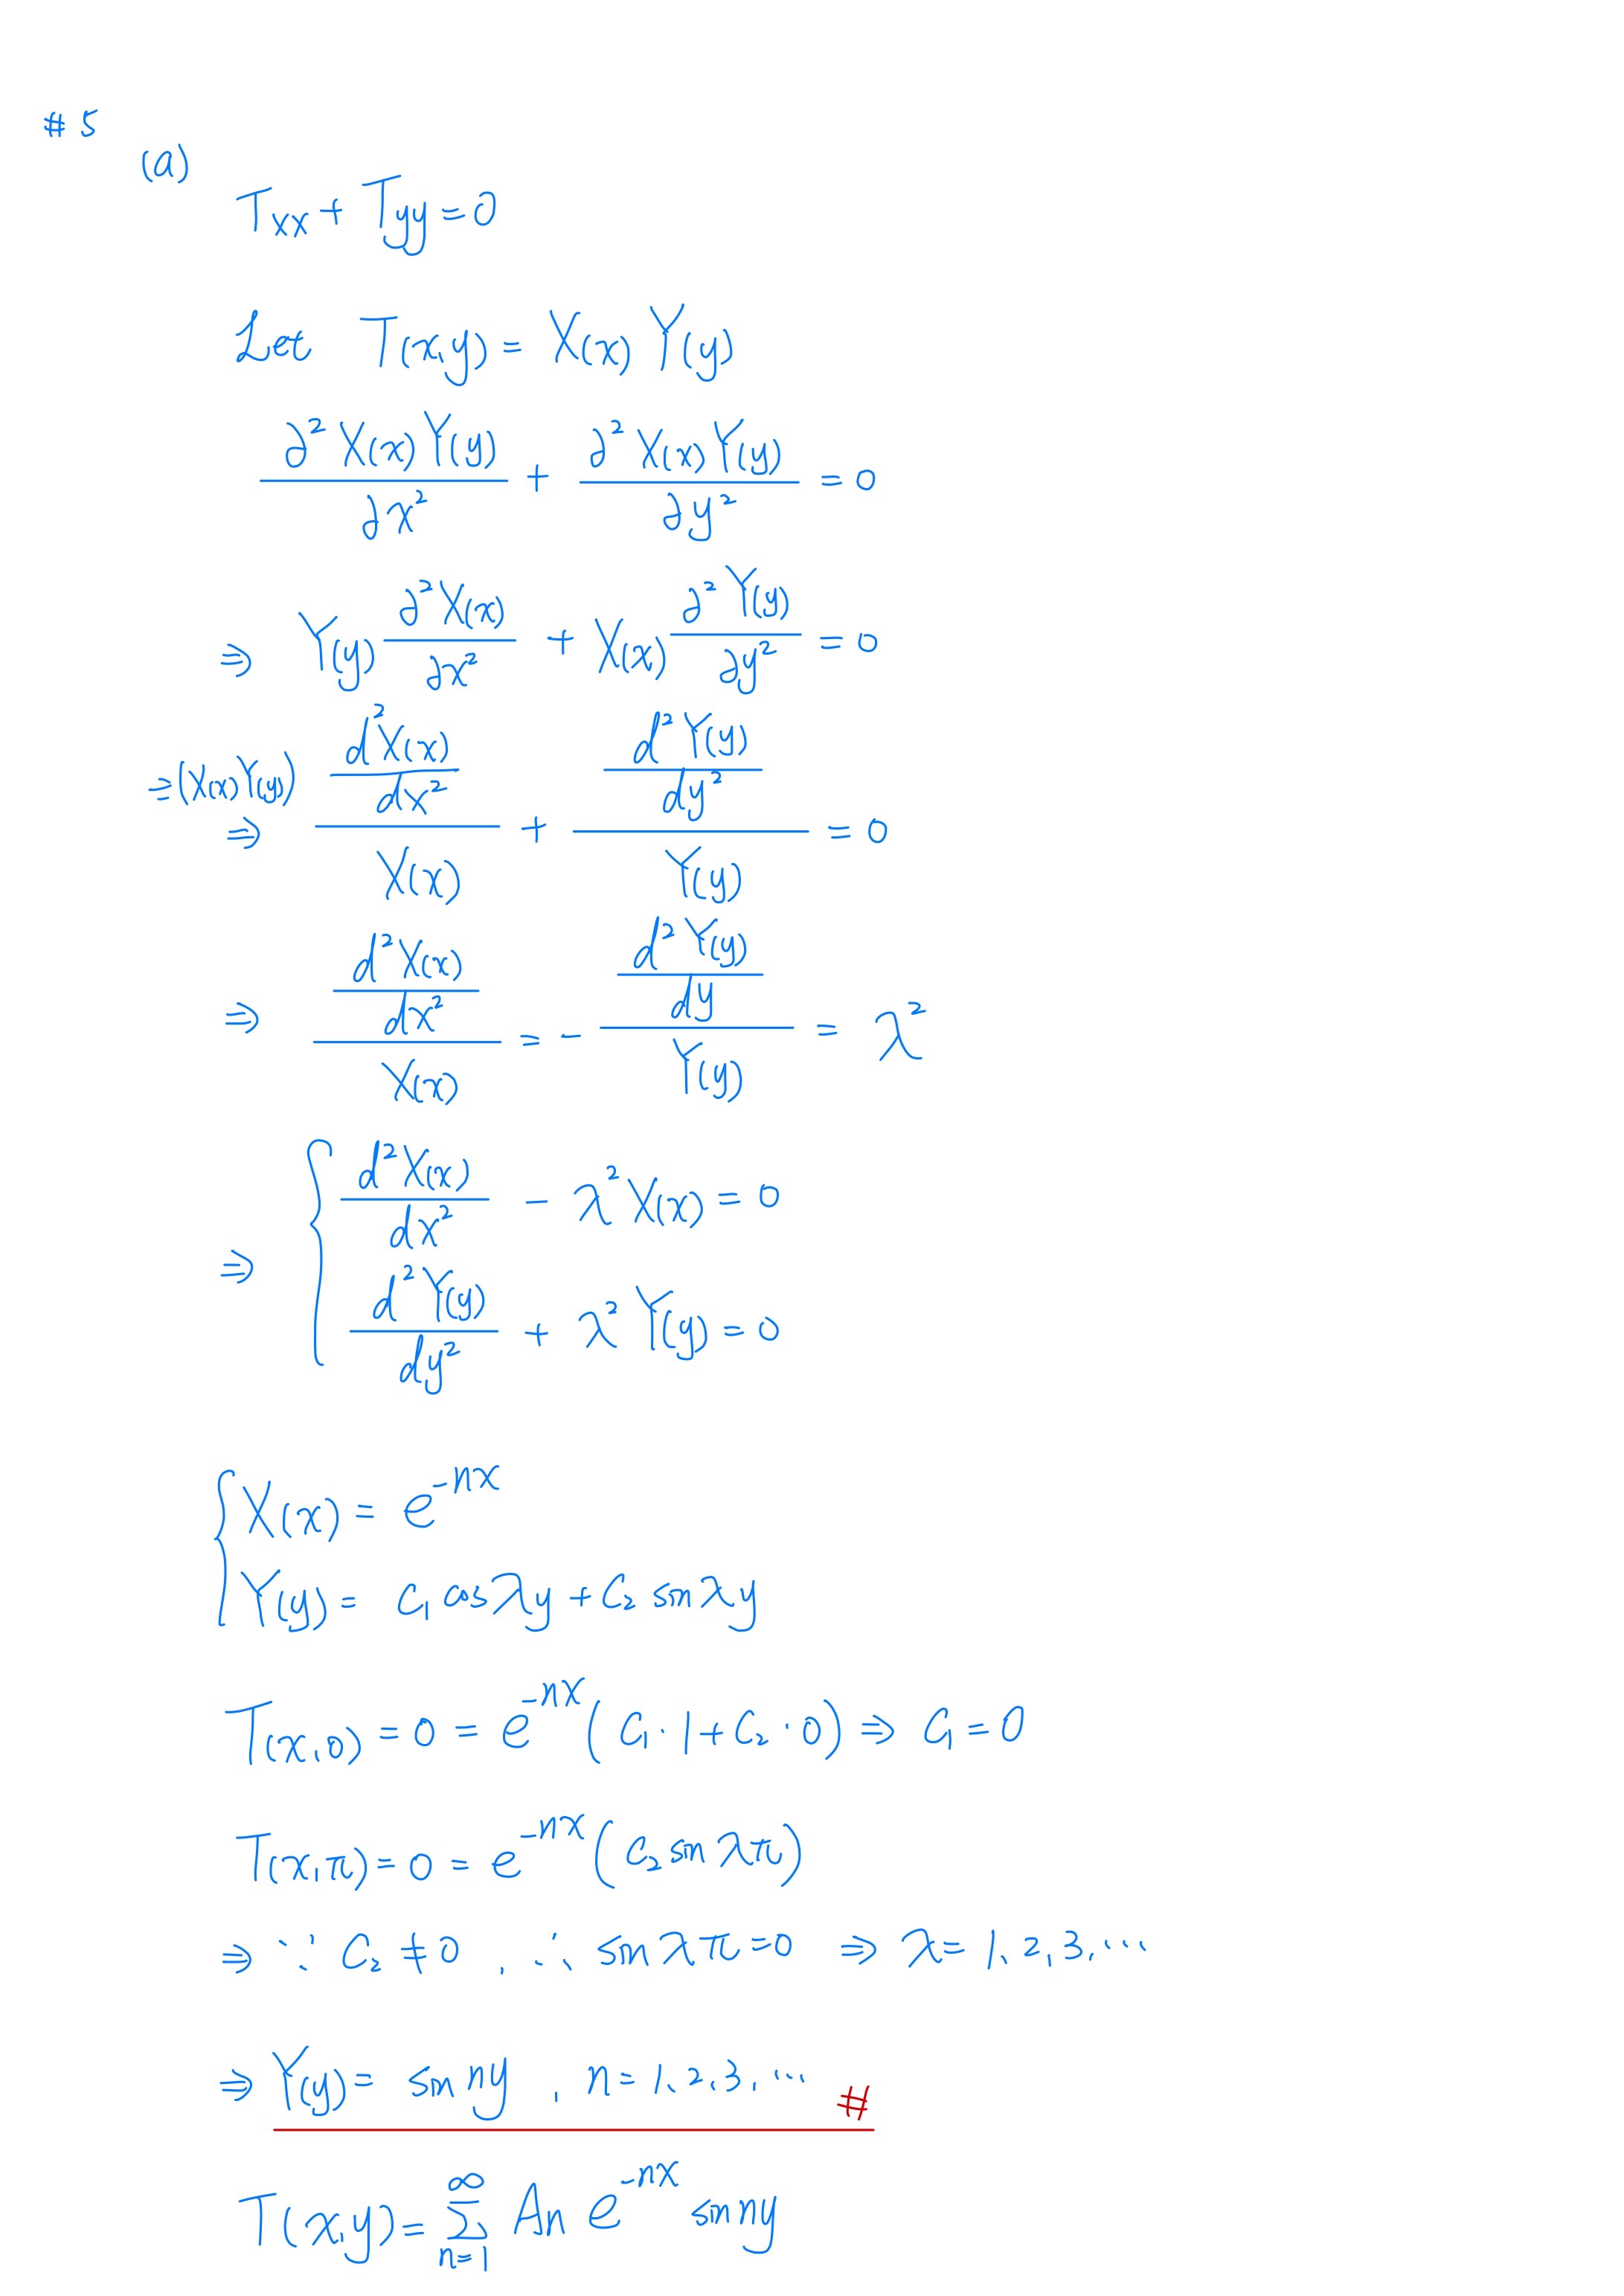 #5
(a)
Txx + Tyy = 0
Let T(x,y) = X(x) Y(y)
∂²X(x)Y(y)/∂x² + ∂²X(x)Y(y)/∂y² = 0
⇒ Y(y) ∂²X(x)/∂x² + X(x) ∂²Y(y)/∂y² = 0
⇒(X(x)Y(y))
⇒ (d²X(x)/dx²)/X(x) + (d²Y(y)/dy²)/Y(y) = 0
⇒ (d²X(x)/dx²)/X(x) = - (d²Y(y)/dy)/Y(y) = λ²
⇒ { d²X(x)/dx² - λ²X(x) = 0
d²Y(y)/dy² + λ²Y(y) = 0
{ X(x) = e^(-nx)
Y(y) = C₁ cos λy + C₂ sin λy
T(x,0) = 0 = e^(-nx) (C₁·1 + C₂·0) ⇒ C₁ = 0
T(x,π) = 0 = e^(-nx) (C₂ sin λπ)
⇒ ∵ C₂ ≠ 0, ∴ sin λπ = 0 ⇒ λ = 1, 2, 3, ...
⇒ Y(y) = sin ny, n = 1, 2, 3, ... #
T(x,y) = ∑_{n=1}^{∞} An e^(-nx) sin ny